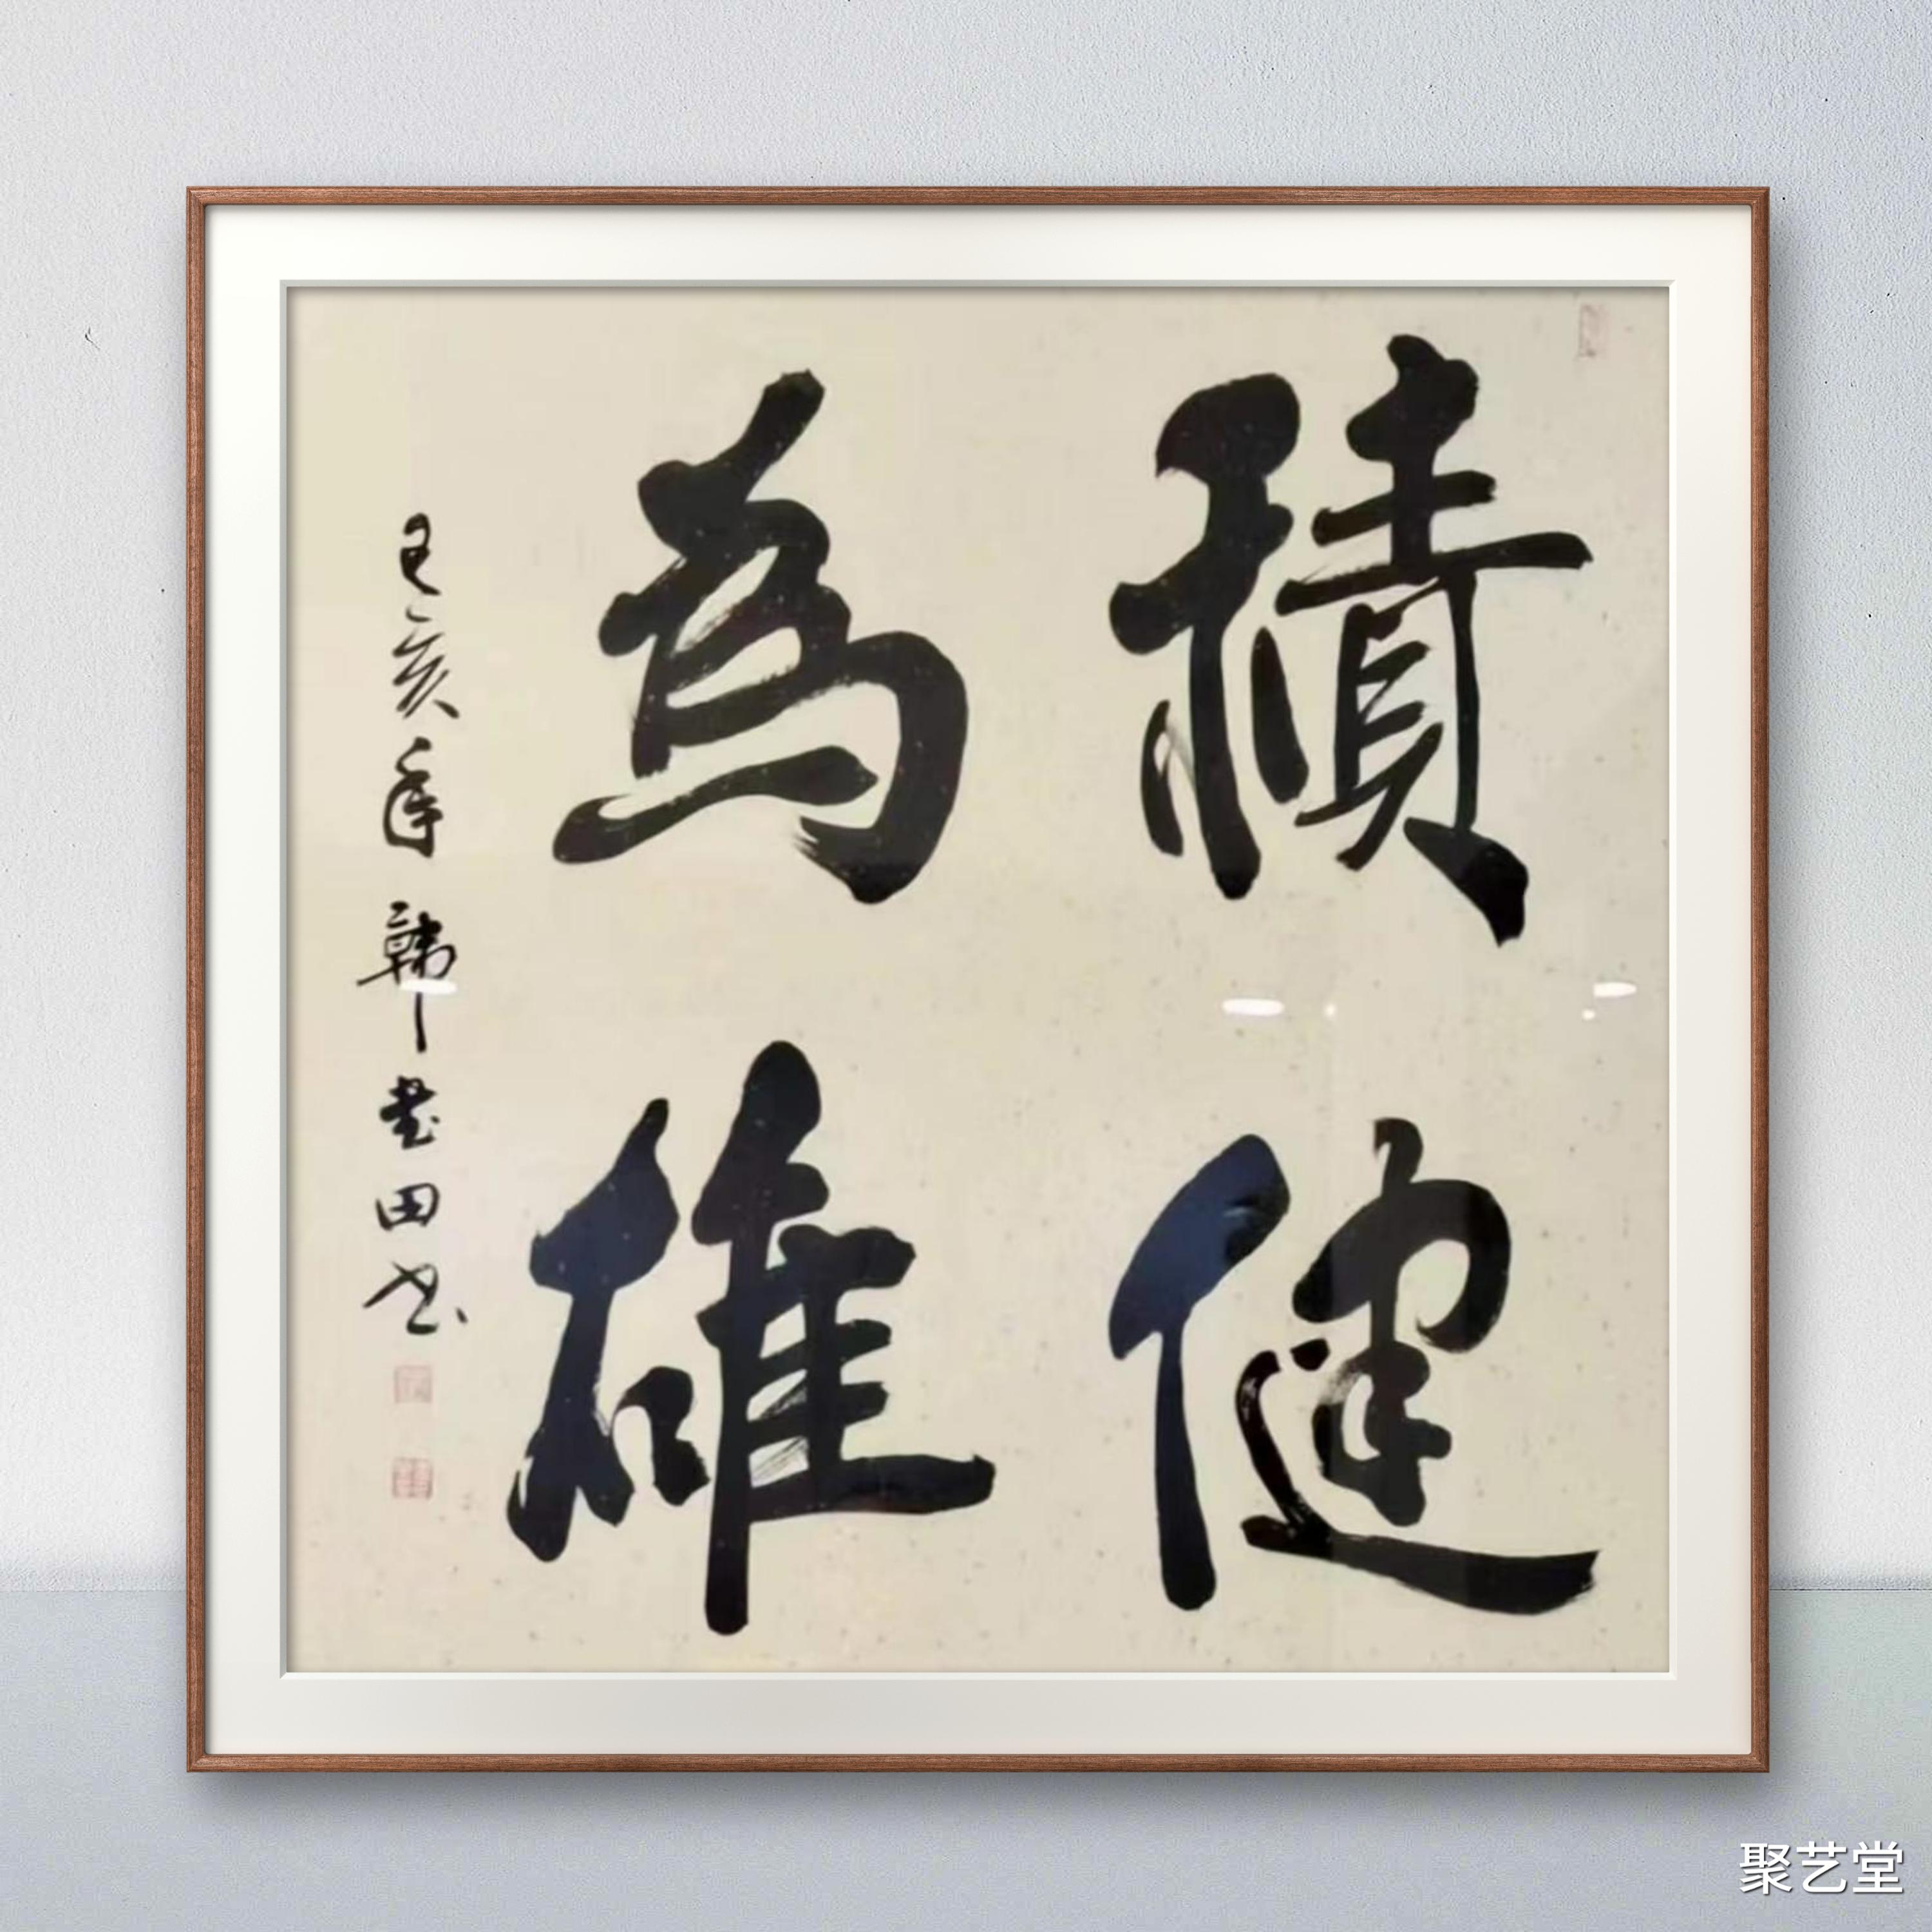 積健
為雄
己亥年韓田书
聚艺堂